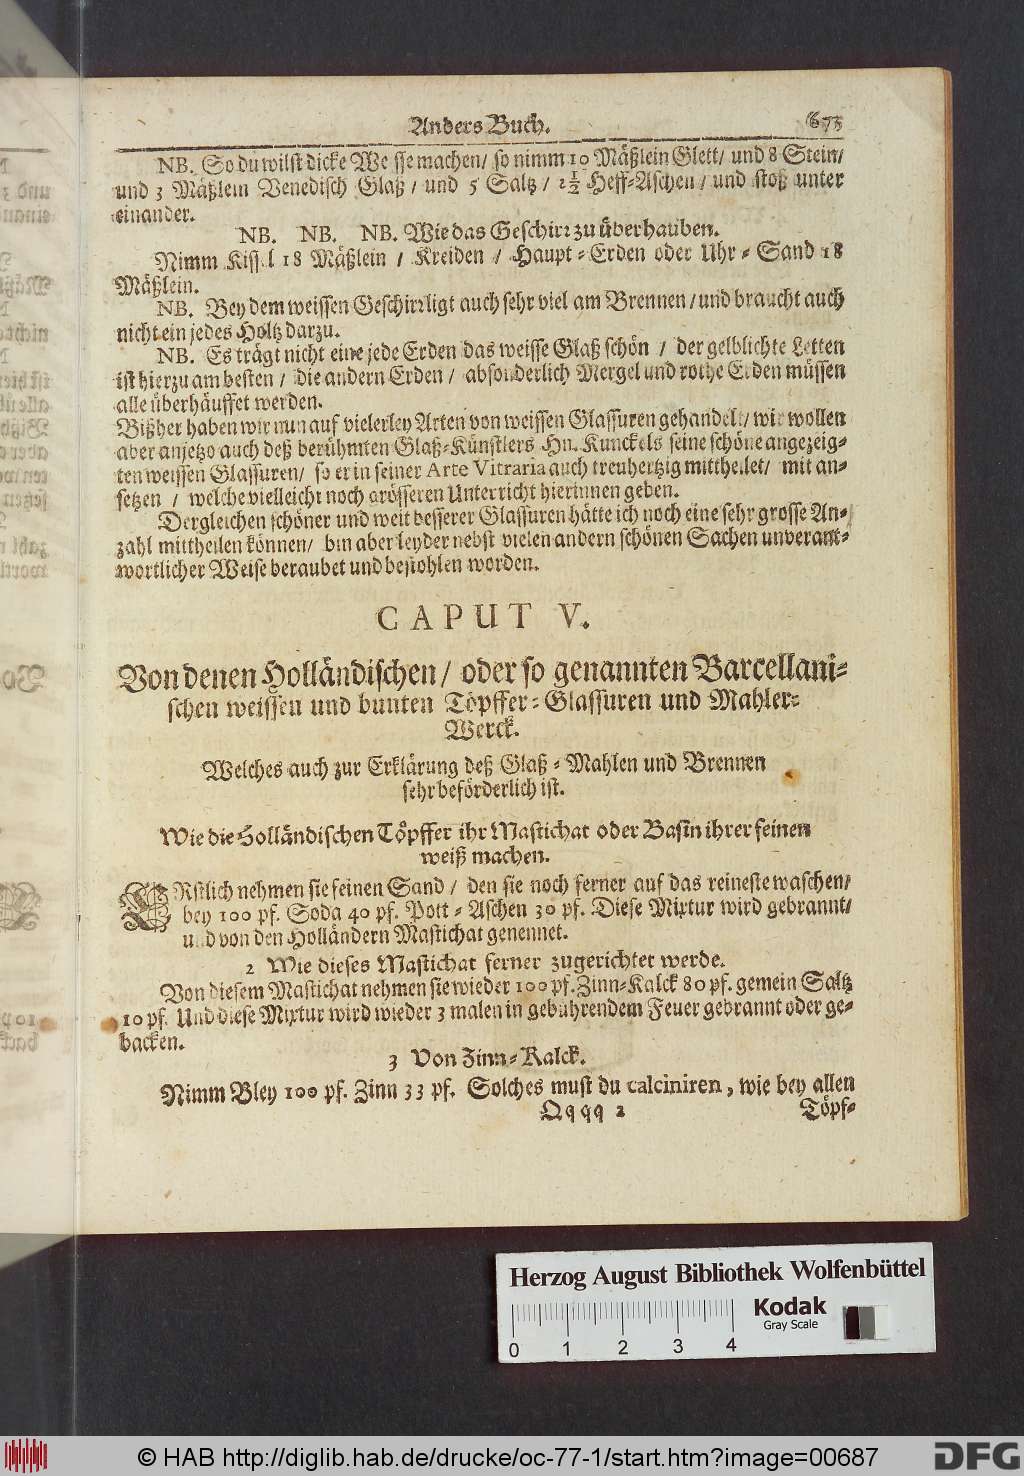 Anders Buch. 675
NB. So du wilst dicke We sse machen/ so nimm 10 Mäßlein Glett/ und 8 Stein/
und 3 Mäßlein Venedisch Glaß/ und 5 Saltz/ 2½ Heff-Aschen/ und stoß unter
einander.
NB. NB. NB. Wie das Geschirr zu überhauben.
Nimm Kissel 18 Mäßlein / Kreiden / Haupt-Erden oder Uhr-Sand 18
Mäßlein.
NB. Bey dem weissen Geschirr ligt auch sehr viel am Brennen/ und braucht auch
nicht ein jedes Holtz darzu.
NB. Es trägt nicht eine jede Erden das weisse Glaß schön / der gelblichte Letten
ist hierzu am besten / die andern Erden / absonderlich Mergel und rothe Erden müssen
alle überhäuffet werden.
Bißher haben wir nun auf vielerley Arten von weissen Glassuren gehandelt/ wir wollen
aber anjetzo auch deß berühmten Glaß-Künstlers Hn. Kunckels seine schöne angezeig-
ten weissen Glassuren/ so er in seiner Arte Vitraria auch treuhertzig mittheilet/ mit an-
setzen / welche vielleicht noch grösseren Unterricht hierinnen geben.
Dergleichen schöner und weit besserer Glassuren hätte ich noch eine sehr grosse An-
zahl mittheilen können/ bin aber leyder nebst vielen andern schönen Sachen unverant-
wortlicher Weise beraubet und bestohlen worden.
CAPUT V.
Von denen Holländischen/ oder so genannten Barcellani-
schen weissen und bunten Töpffer-Glassuren und Mahler-
Werck.
Welches auch zur Erklärung deß Glaß-Mahlen und Brennen
sehr beförderlich ist.
Wie die Holländischen Töpffer ihr Mastichat oder Basin ihrer feinen
weiß machen.
ERstlich nehmen sie feinen Sand / den sie noch ferner auf das reineste waschen/
bey 100 pf. Soda 40 pf. Pott-Aschen 30 pf. Diese Mixtur wird gebrannt/
und von den Holländern Mastichat genennet.
2 Wie dieses Mastichat ferner zugerichtet werde.
Von diesem Mastichat nehmen sie wieder 100 pf. Zinn-Kalck 80 pf. gemein Saltz
10 pf. Und diese Mixtur wird wieder 3 malen in gebührendem Feuer gebrannt oder ge-
backen.
3 Von Zinn-Kalck.
Nimm Bley 100 pf. Zinn 33 pf. Solches must du calciniren, wie bey allen
Qqqq 2 Töpf-
Herzog August Bibliothek Wolfenbüttel
Kodak
Gray Scale
0 1 2 3 4
© HAB http://diglib.hab.de/drucke/oc-77-1/start.htm?image=00687
DFG